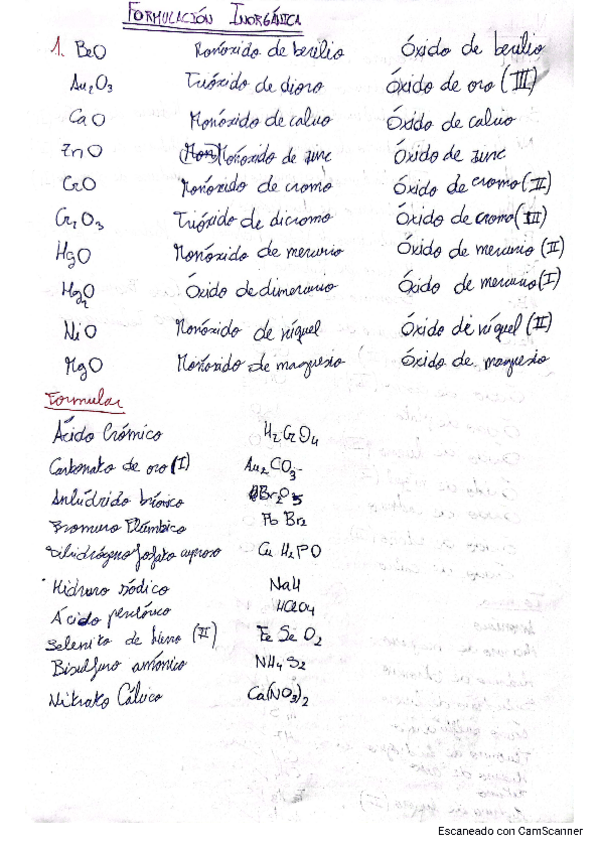 FORMULACIÓN INORGÁNICA
1. BeO Monóxido de berilio Óxido de berilio
Au2O3 Trióxido de dioro Óxido de oro (III)
CaO Monóxido de calcio Óxido de calcio
ZnO Monóxido de zinc Óxido de zinc
CrO Monóxido de cromo Óxido de cromo (II)
Cr2O3 Trióxido de dicromo Óxido de cromo (III)
HgO Monóxido de mercurio Óxido de mercurio (II)
Hg2O Óxido de dimercurio Óxido de mercurio (I)
NiO Monóxido de níquel Óxido de níquel (II)
MgO Monóxido de magnesio Óxido de magnesio
Formular
Ácido Crómico H2CrO4
Carbonato de oro (I) Au2CO3
Anhídrido brómico Br2O5
Bromuro Plúmbico Pb Br2
Dihidrógeno fosfato cuproso Cu H2PO
Hidruro sódico NaH
Ácido perclórico HClO4
Selenito de hierro (II) Fe Se O2
Bisulfuro amónico NH4S2
Nitrato Cálcico Ca(NO3)2
Escaneado con CamScanner